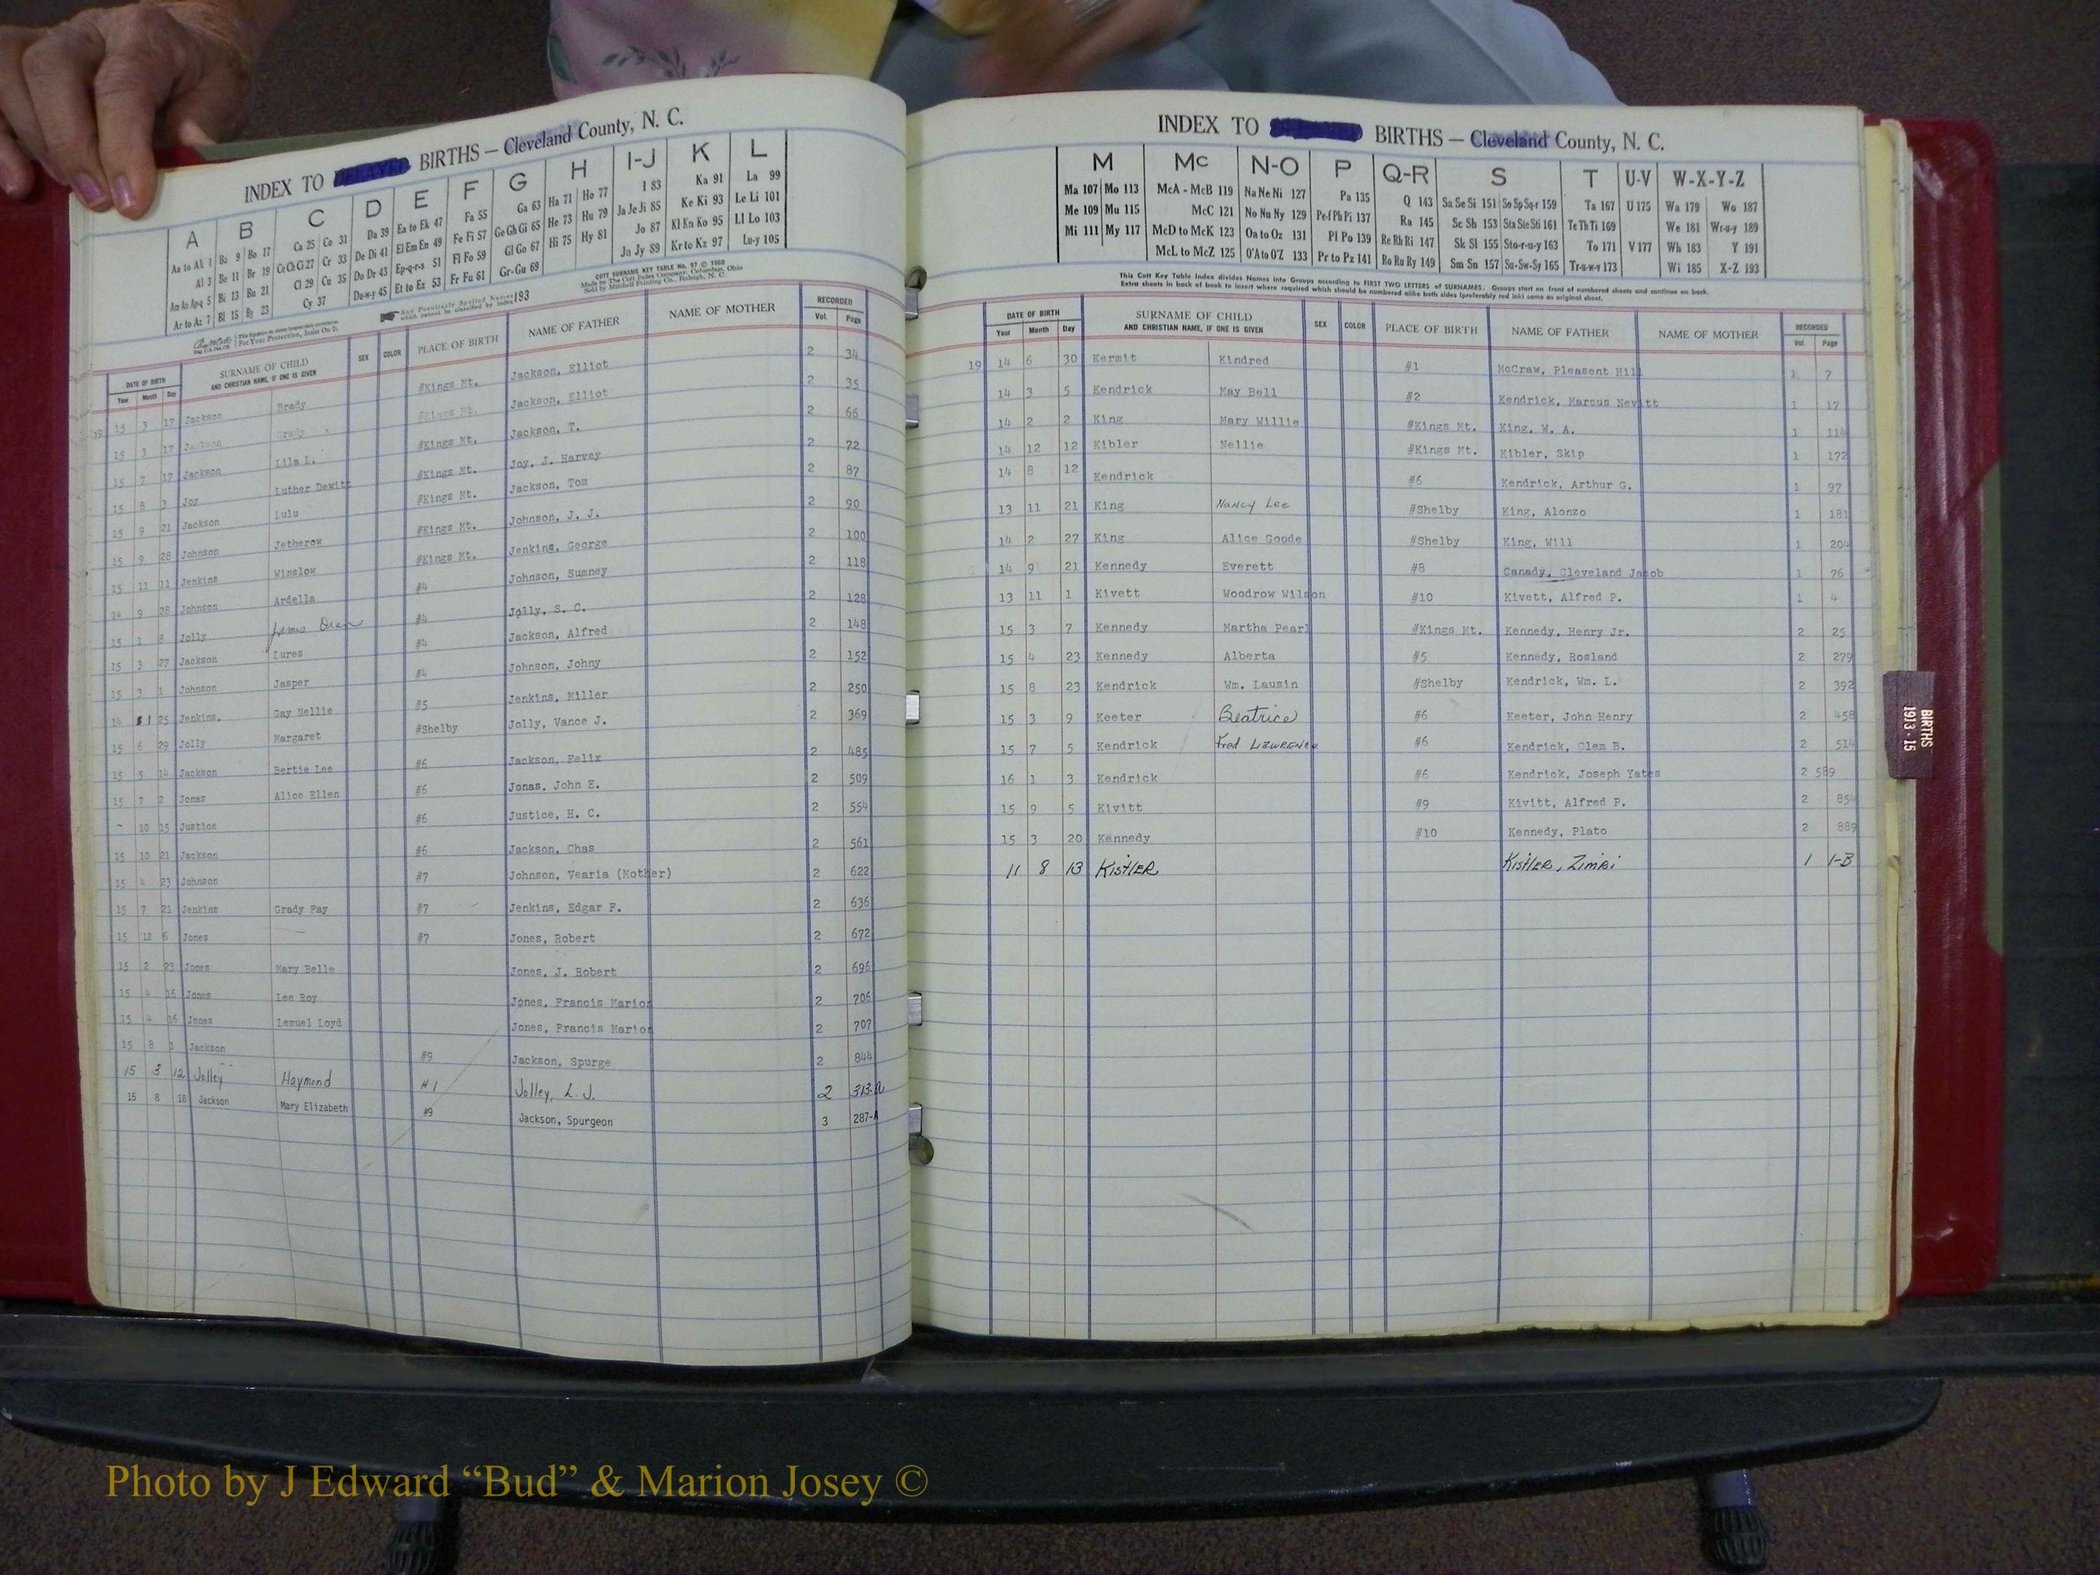 INDEX TO DELAYED BIRTHS — Cleveland County, N. C.
A B C D E F G H I-J K L
Aa to Ak 1 Ba 9 Bo 17 Ca 25 Co 31 Da 39 Ea to Ek 47 Fa 55 Ga 63 Ha 71 Ho 77 I 83 Ka 91 La 99
Al 3 Be 11 Br 19 Ce Ch Ci 27 Cr 33 De Di 41 El Em En 49 Fe Fi 57 Ge Gh Gi 65 He 73 Hu 79 Ja Je Ji 85 Ke Ki 93 Le Li 101
Am An Ap-q 5 Bi 13 Bu 21 Cl 29 Cu 35 Do Dr 43 Ep-q-r-s 51 Fl Fo 59 Gl Go 67 Hi 75 Hy 81 Jo 87 Kl Kn Ko 95 Ll Lo 103
Ar to Az 7 Bl 15 By 23 Cy 37 Du-w-y 45 Et to Ez 53 Fr Fu 61 Gr-Gu 69 Ju Jy 89 Kr to Kz 97 Lu-y 105
Any Peculiarly Spelled Names which cannot be classified by Index 193
COTT SURNAME KEY TABLE No. 97 © 1960
Made by The Cott Index Company, Columbus, Ohio
Sold by Mitchell Printing Co., Raleigh, N. C.
For Your Protection, Insist On It.
DATE OF BIRTH SURNAME OF CHILD SEX COLOR PLACE OF BIRTH NAME OF FATHER NAME OF MOTHER RECORDED
Year Month Day AND CHRISTIAN NAME, IF ONE IS GIVEN Vol. Page
19 15 3 17 Jackson Brady #Kings Mt. Jackson, Elliot 2 34
15 3 17 Jackson Grady #Kings Mt. Jackson, Elliot 2 35
15 7 17 Jackson Lila L. #Kings Mt. Jackson, T. 2 66
15 8 3 Joy Luther Dewitt #Kings Mt. Joy, J. Harvey 2 72
15 9 21 Jackson Lulu #Kings Mt. Jackson, Tom 2 87
15 9 28 Johnson Jetherow #Kings Mt. Johnson, J. J. 2 90
15 11 11 Jenkins Winslow #Kings Mt. Jenkins, George 2 100
14 9 28 Johnson Ardella #4 Johnson, Sumney 2 118
15 1 8 Jolly Dean #4 Jolly, S. C. 2 128
15 3 27 Jackson Lures #4 Jackson, Alfred 2 148
15 3 1 Johnson Jasper #4 Johnson, Johny 2 152
14 1 25 Jenkins. Gay Nellie #5 Jenkins, Miller 2 250
15 6 29 Jolly Margaret #Shelby Jolly, Vance J. 2 369
15 5 14 Jackson Bertie Lee #6 Jackson, Felix 2 485
15 7 2 Jonas Alice Ellen #6 Jonas, John E. 2 509
10 15 Justice #6 Justice, H. C. 2 554
15 10 21 Jackson #6 Jackson, Chas 2 561
15 4 23 Johnson #7 Johnson, Vearia (Mother) 2 622
15 7 21 Jenkins Grady Fay #7 Jenkins, Edgar F. 2 636
15 12 6 Jones #7 Jones, Robert 2 672
15 2 23 Jones Mary Belle Jones, J. Robert 2 696
15 4 16 Jones Lee Roy Jones, Francis Marion 2 706
15 4 16 Jones Lemuel Loyd Jones, Francis Marion 2 707
15 8 1 Jackson #9 Jackson, Spurge 2 844
15 3 12 Jolley Haymond #1 Jolley, L. J. 2 313-a
15 8 18 Jackson Mary Elizabeth #9 Jackson, Spurgeon 3 287-A
INDEX TO BIRTHS — Cleveland County, N. C.
M Mc N-O P Q-R S T U-V W-X-Y-Z
Ma 107 Mo 113 McA - McB 119 Na Ne Ni 127 Pa 135 Q 143 Sa Se Si 151 So Sp Sq-r 159 Ta 167 U 175 Wa 179 Wo 187
Me 109 Mu 115 McC 121 No Nu Ny 129 Pe-f Ph Pi 137 Ra 145 Sc Sh 153 Sta Ste Sti 161 Te Th Ti 169 We 181 Wr-u-y 189
Mi 111 My 117 McD to McK 123 Oa to Oz 131 Pl Po 139 Re Rh Ri 147 Sk Sl 155 Sto-r-u-y 163 To 171 V 177 Wh 183 Y 191
McL to McZ 125 O'A to O'Z 133 Pr to Pz 141 Ro Ru Ry 149 Sm Sn 157 Su-Sw-Sy 165 Tr-u-w-y 173 Wi 185 X-Z 193
This Cott Key Table Index divides Names into Groups according to FIRST TWO LETTERS of SURNAMES. Groups start on front of numbered sheets and continue on back.
Extra sheets in back of book to insert where required which should be numbered alike both sides (preferably red ink) same as original sheet.
DATE OF BIRTH SURNAME OF CHILD SEX COLOR PLACE OF BIRTH NAME OF FATHER NAME OF MOTHER RECORDED
Year Month Day AND CHRISTIAN NAME, IF ONE IS GIVEN Vol. Page
19 14 6 30 Kermit Kindred #1 McCraw, Pleasent Hill 1 7
14 3 5 Kendrick May Bell #2 Kendrick, Marcus Nevitt 1 17
14 2 2 King Mary Willie #Kings Mt. King, W. A. 1 114
14 12 12 Kibler Nellie #Kings Mt. Kibler, Skip 1 172
14 8 12 Kendrick #6 Kendrick, Arthur G. 1 97
13 11 21 King Nancy Lee #Shelby King, Alonzo 1 181
14 2 27 King Alice Goode #Shelby King, Will 1 204
14 9 21 Kennedy Everett #8 Canady, Cleveland Jacob 1 76
13 11 1 Kivett Woodrow Wilson #10 Kivett, Alfred P. 1 4
15 3 7 Kennedy Martha Pearl #Kings Mt. Kennedy, Henry Jr. 2 25
15 4 23 Kennedy Alberta #5 Kennedy, Rosland 2 279
15 8 23 Kendrick Wm. Lausin #Shelby Kendrick, Wm. L. 2 392
15 3 9 Keeter Beatrice #6 Keeter, John Henry 2 458
15 7 5 Kendrick Fred Lawrence #6 Kendrick, Clem B. 2 514
16 1 3 Kendrick #6 Kendrick, Joseph Yates 2 589
15 9 5 Kivitt #9 Kivitt, Alfred P. 2 854
15 3 20 Kennedy #10 Kennedy, Plato 2 889
11 8 13 Kistler Kistler, Zimri 1 1-B
BIRTHS
1913-15
Photo by J Edward “Bud” & Marion Josey ©